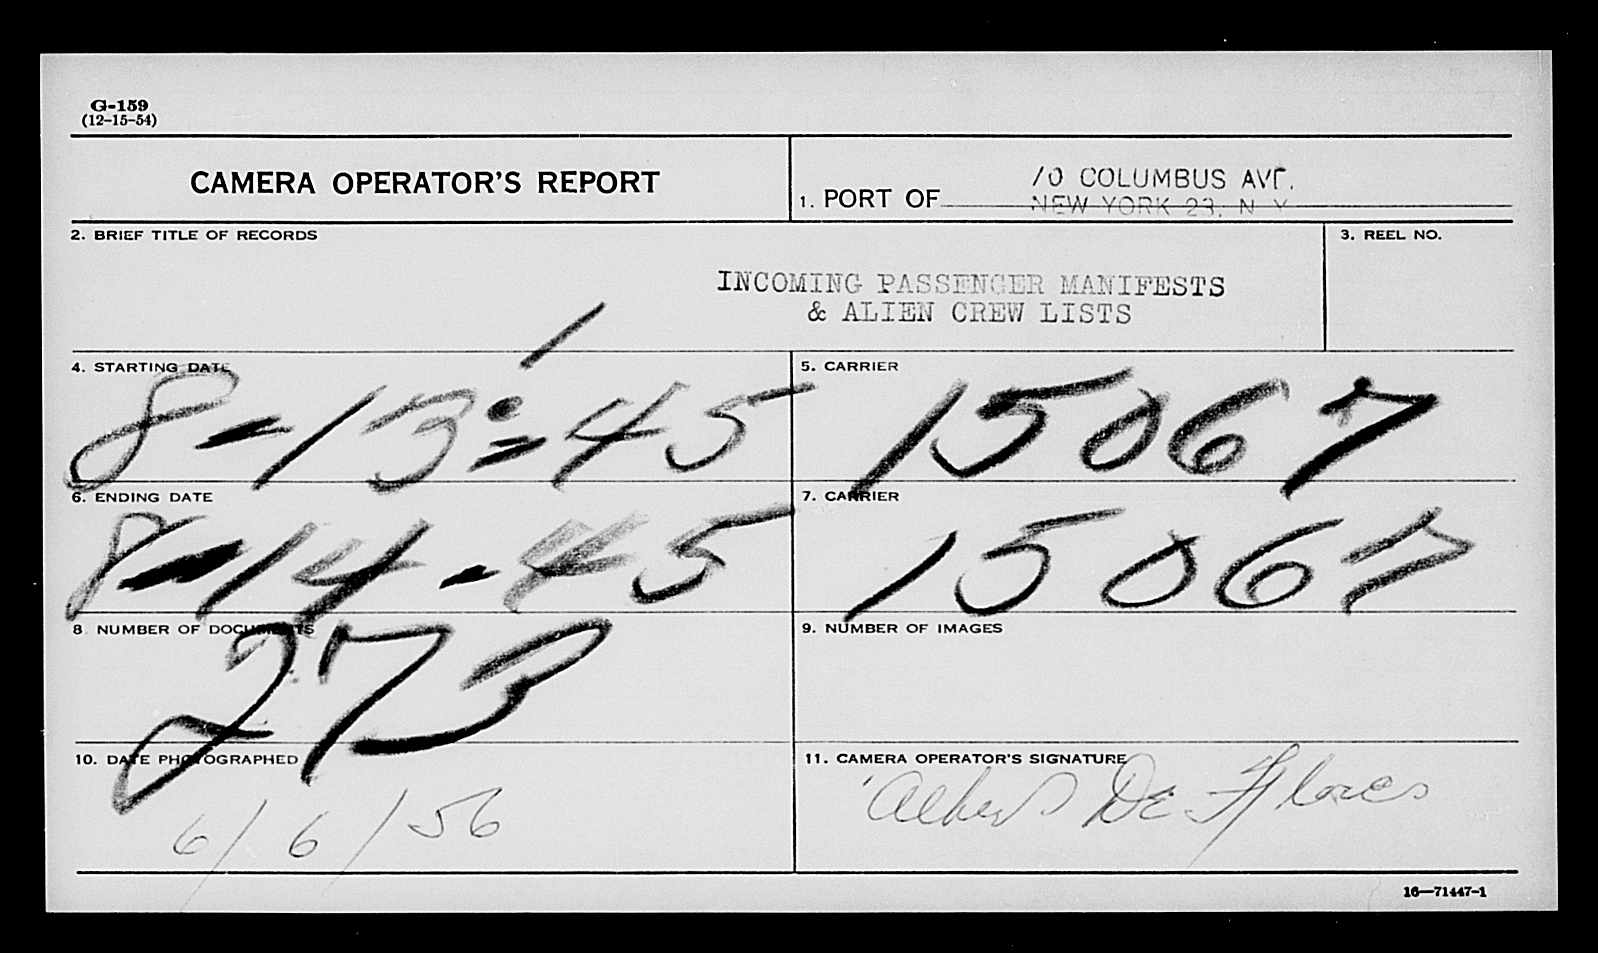 G-159
(12-15-54)
CAMERA OPERATOR'S REPORT
1. PORT OF 10 COLUMBUS AVE.
NEW YORK 23, N Y
2. BRIEF TITLE OF RECORDS
3. REEL NO.
INCOMING PASSENGER MANIFESTS
& ALIEN CREW LISTS
4. STARTING DATE
8-13-45
5. CARRIER
15067
6. ENDING DATE
8-14-45
7. CARRIER
15067
8 NUMBER OF DOCUMENTS
273
9. NUMBER OF IMAGES
10. DATE PHOTOGRAPHED
6/6/56
11. CAMERA OPERATOR'S SIGNATURE
Albert De Flores
16—71447-1